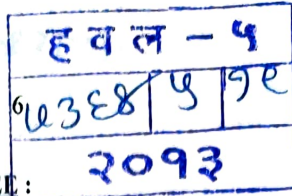 ह व ल - ५
५३६४ ५ १९
२०१३
E :